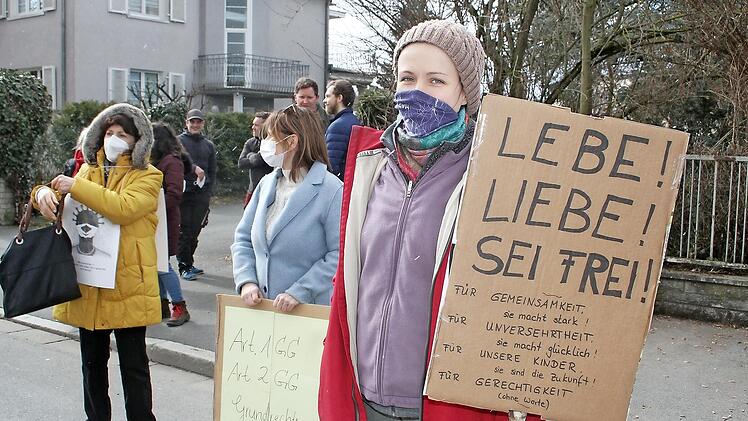 LEBE!
LIEBE!
SEI FREI!
FÜR GEMEINSAMKEIT,
sie macht stark!
FÜR UNVERSEHRTHEIT,
sie macht glücklich!
FÜR UNSERE KINDER,
sie sind die Zukunft!
FÜR GERECHTIGKEIT
(ohne Worte)
Art. 1 GG
Art. 2 GG